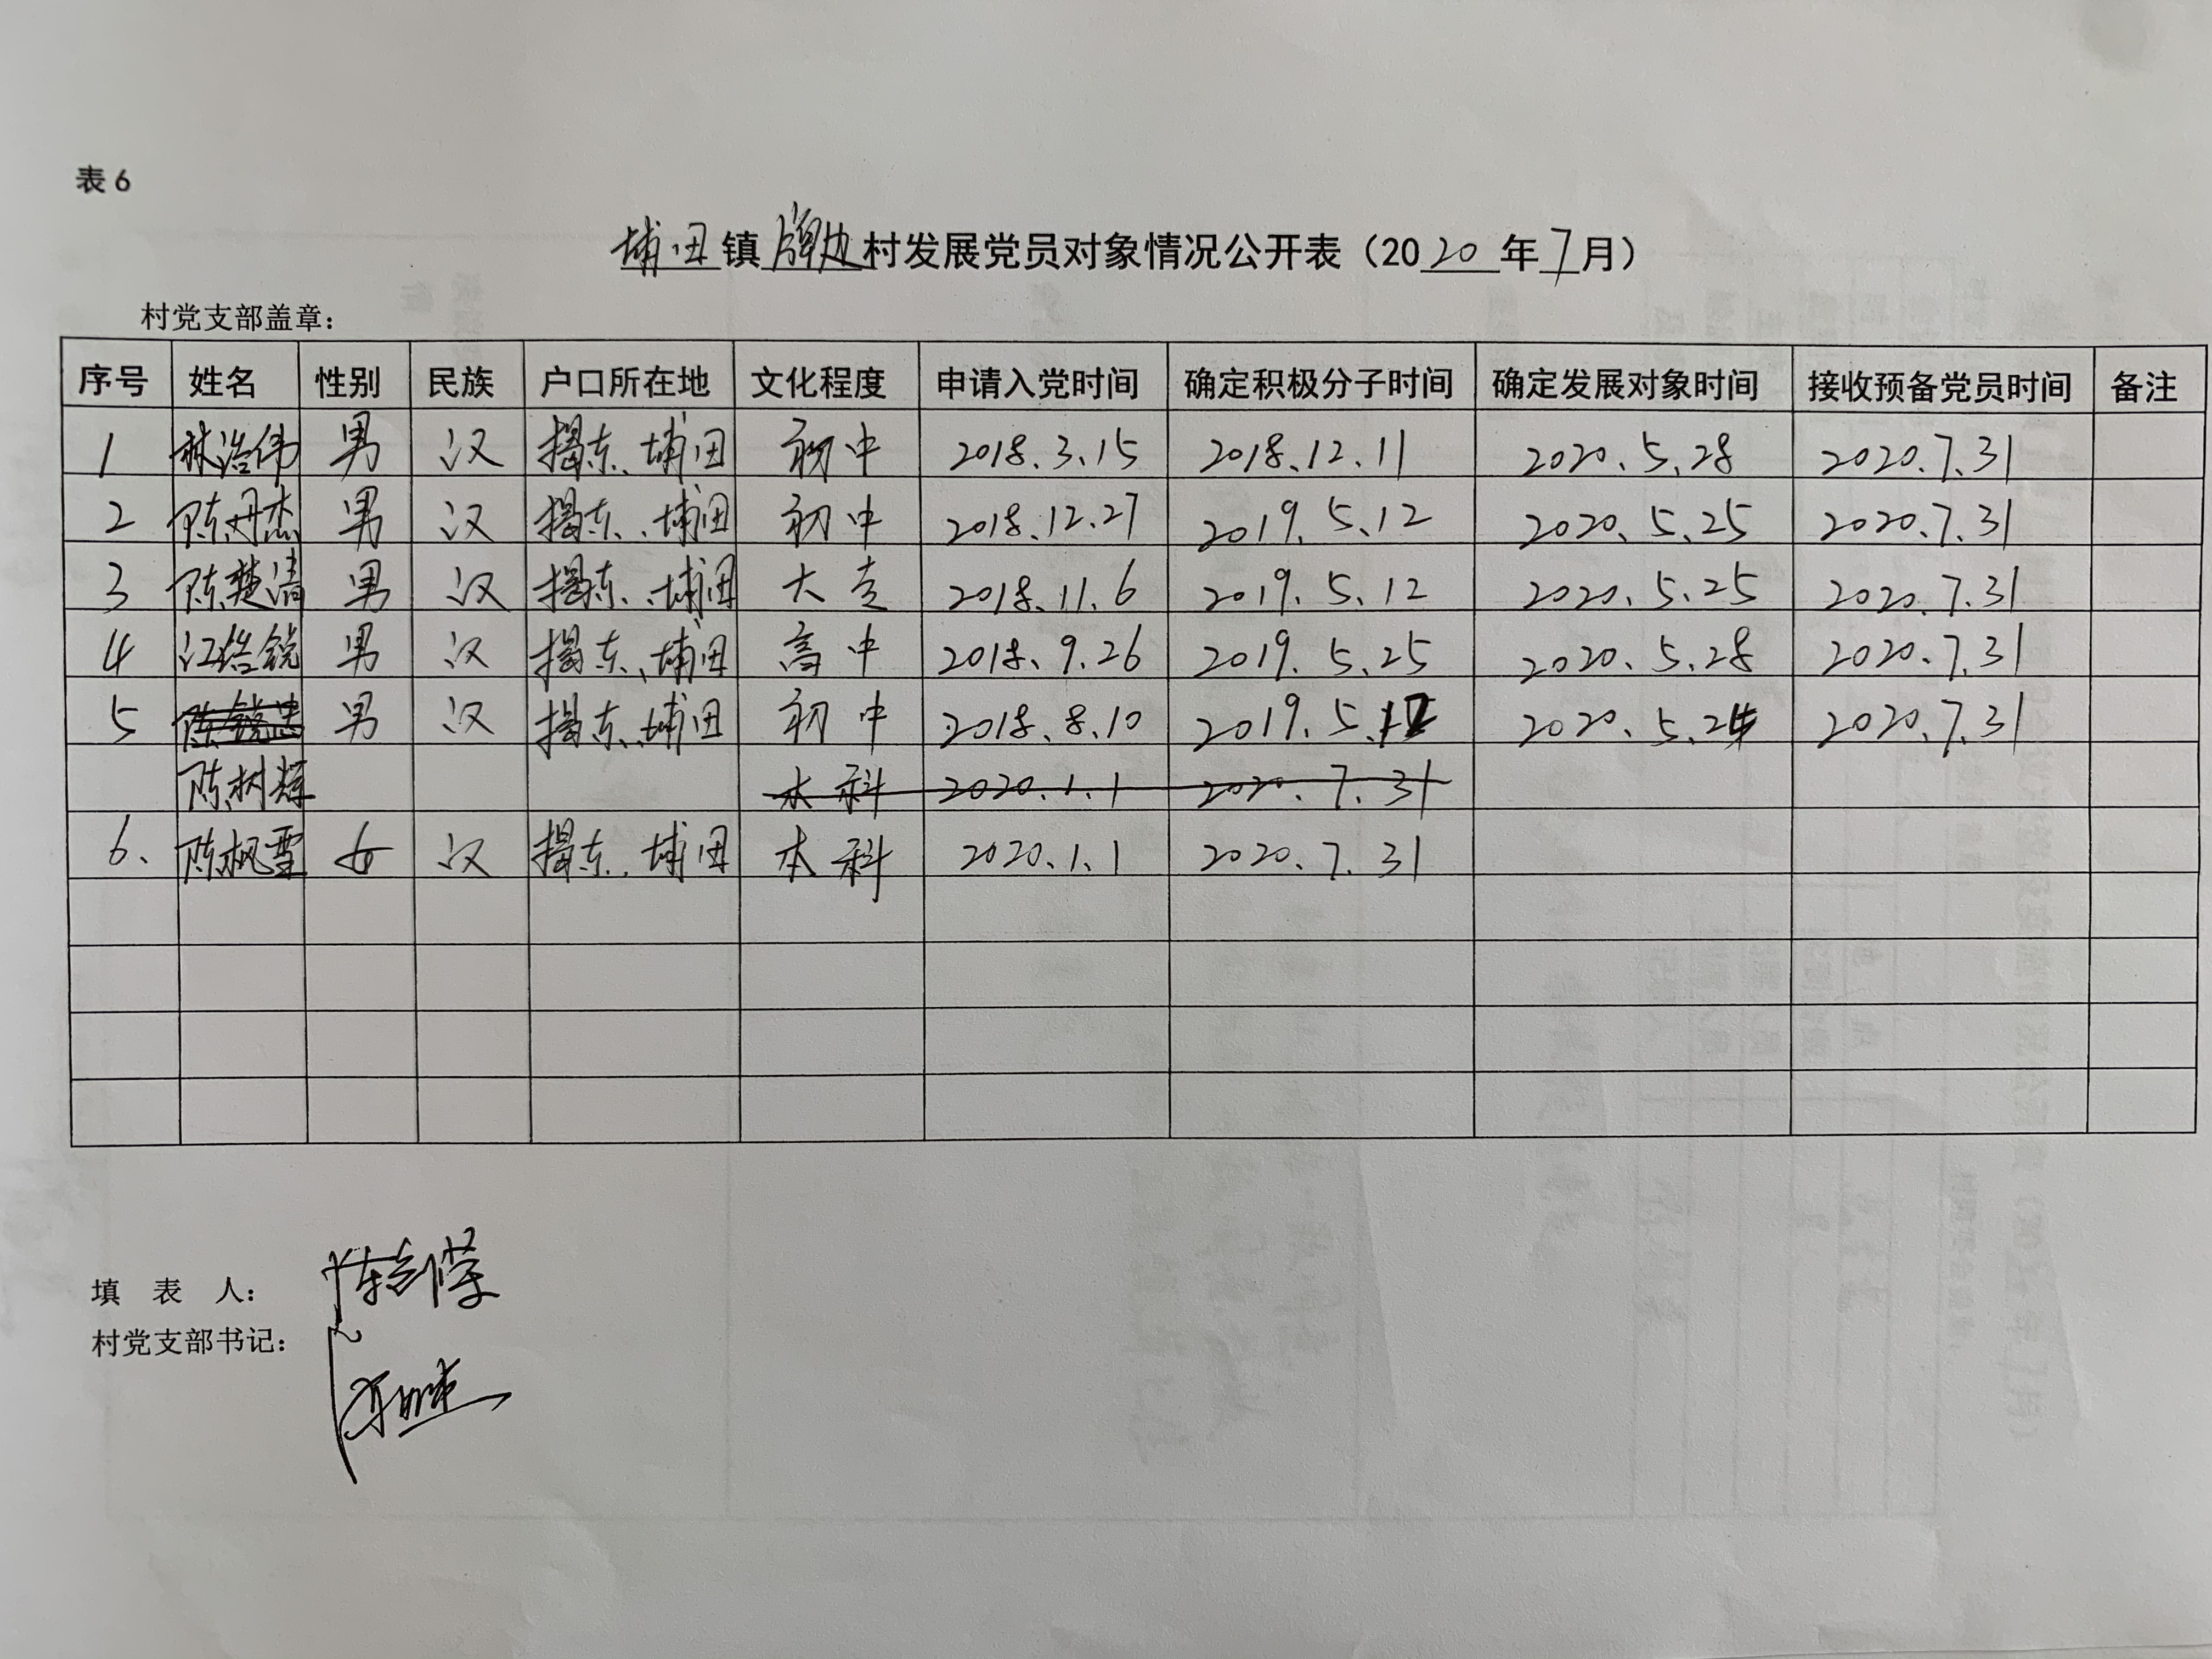 表6
埔田镇牌边村发展党员对象情况公开表（2020年7月）
村党支部盖章：
序号 姓名 性别 民族 户口所在地 文化程度 申请入党时间 确定积极分子时间 确定发展对象时间 接收预备党员时间 备注
1 林浩伟 男 汉 揭东、埔田 初中 2018.3.15 2018.12.11 2020.5.28 2020.7.31
2 陈丹杰 男 汉 揭东、埔田 初中 2018.12.27 2019.5.12 2020.5.25 2020.7.31
3 陈楚清 男 汉 揭东、埔田 大专 2018.11.6 2019.5.12 2020.5.25 2020.7.31
4 江 锐 男 汉 揭东、埔田 高中 2018.9.26 2019.5.25 2020.5.28 2020.7.31
5 陈锐 男 汉 揭东、埔田 初中 2018.8.10 2019.5.12 2020.5.24 2020.7.31
陈树辉 本科 2020.1.1 2020.7.31
6. 陈枫雪 女 汉 揭东、埔田 本科 2020.1.1 2020.7.31
填 表 人：
村党支部书记：